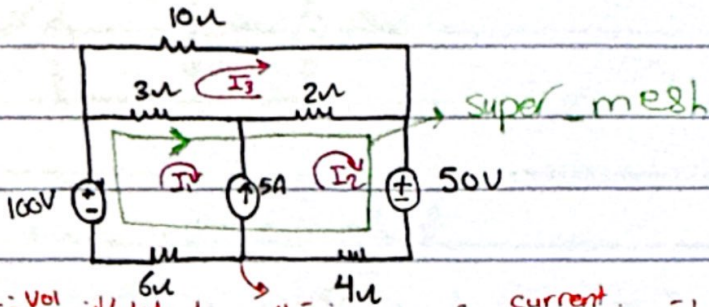 10Ω
I3
3Ω 2Ω
super_mesh
100V + - I1 5A I2 + - 50V
6Ω 4Ω
: Vol current